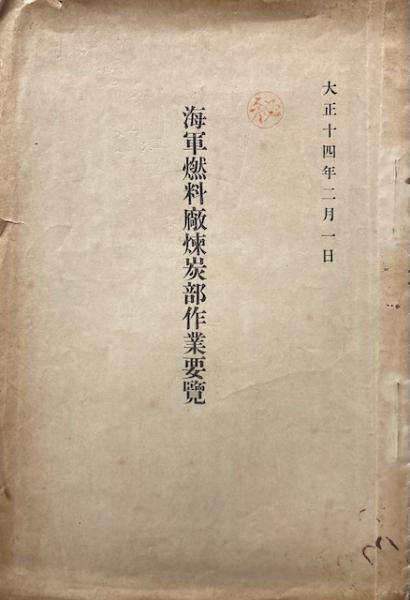 大正十四年二月一日
秘
海軍燃料廠煉炭部作業要覽